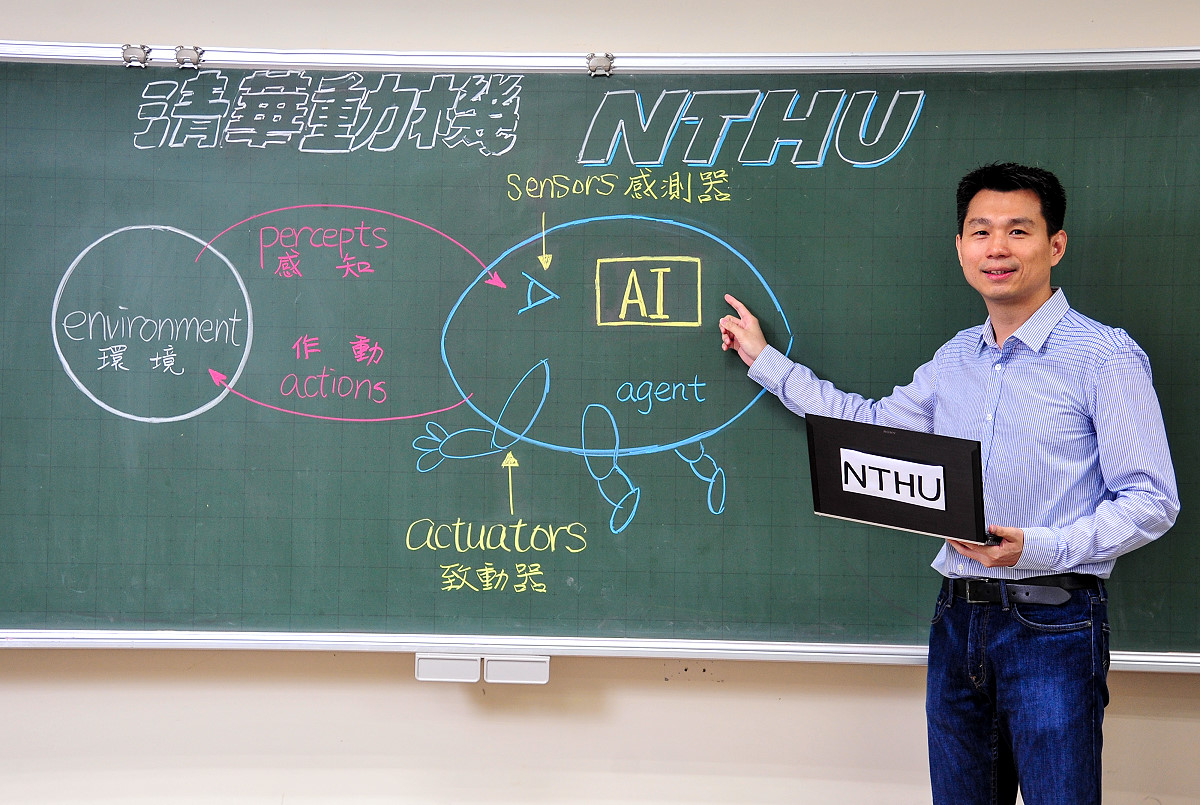 清華動機 NTHU
sensors 感測器
percepts
感 知
AI
environment
環 境
作 動
actions
agent
NTHU
actuators
致動器